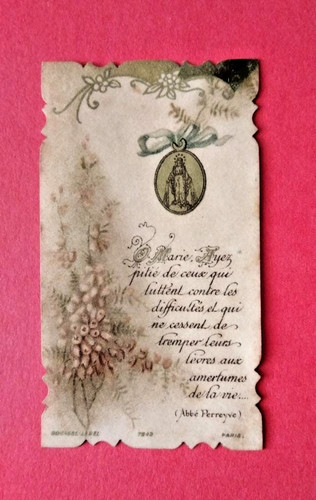 O Marie, Ayez
pitié de ceux qui
luttent contre les
difficultés et qui
ne cessent de
tremper leurs
lèvres aux
amertumes
de la vie...
(Abbé Perreyve)
PARIS